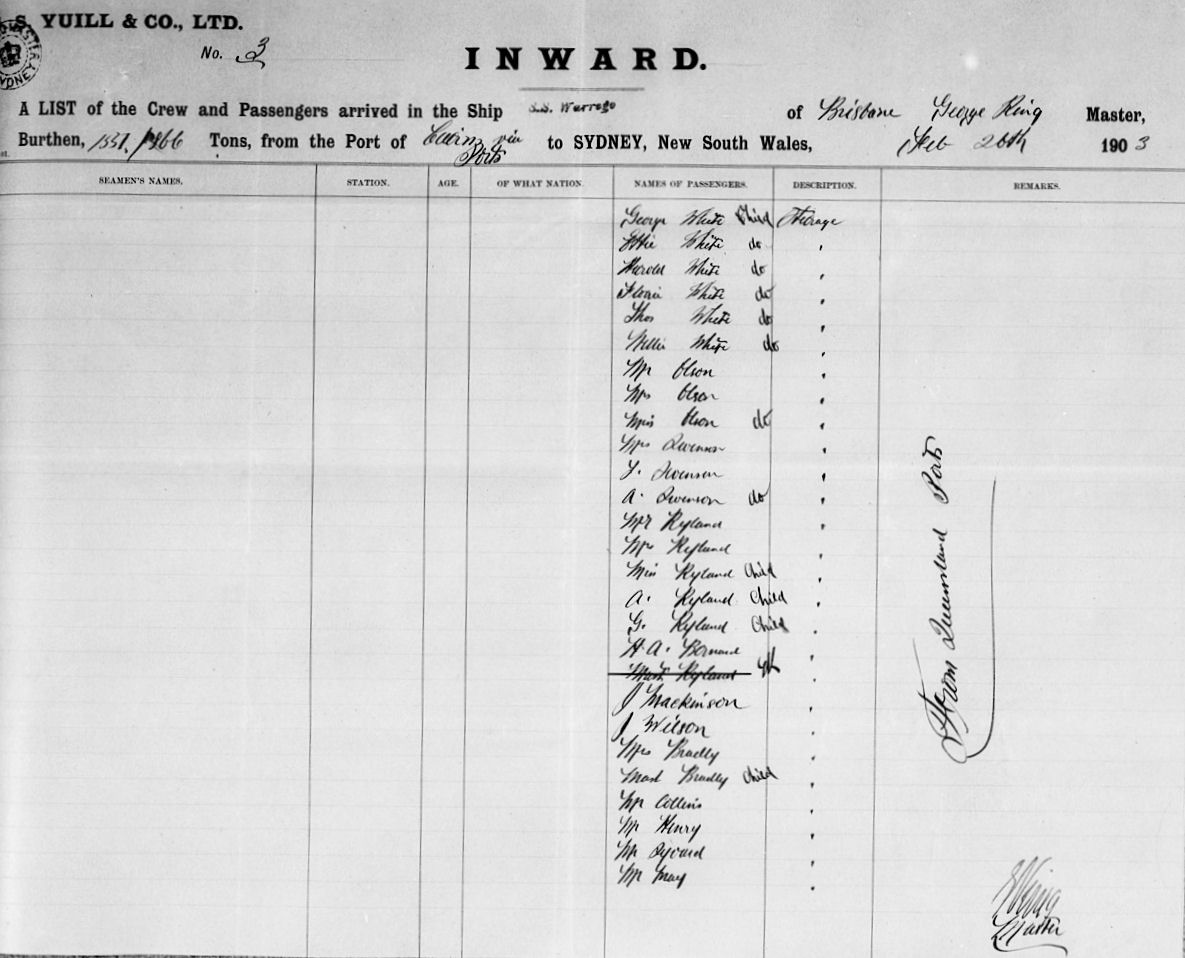 S. YUILL & CO., LTD.
No. 3
INWARD.
A LIST of the Crew and Passengers arrived in the Ship S.S. Warrego of Brisbane George King Master,
Burthen, 1537/966 Tons, from the Port of Cairns via Ports to SYDNEY, New South Wales, Feb 26th 1903
SEAMEN'S NAMES. STATION. AGE. OF WHAT NATION. NAMES OF PASSENGERS. DESCRIPTION. REMARKS.
George White Child Steerage
Ettie White do "
Harold White do "
Florrie White do "
Thos White do "
Willie White do "
Mr Olson "
Mrs Olson "
Miss Olson do "
Mrs Swenson "
F. Swenson "
A. Swenson do "
Mr Ryland "
Mrs Ryland "
Miss Ryland Child "
A. Ryland Child "
G. Ryland Child "
H. A. Bernard "
Mast Ryland "
J Mackinson "
J Wilson "
Mrs Bradly "
Mast Bradly Child "
Mr Collins "
Mr Henry "
Mr "
Mr May "
From Queensland Ports
G King
Master